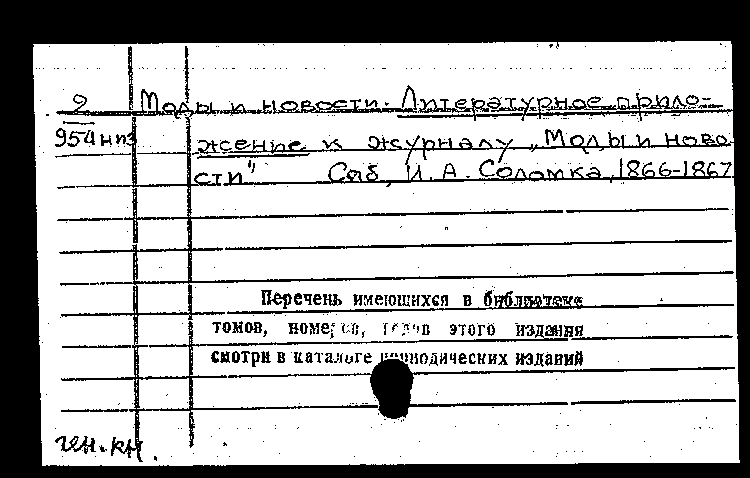 9 Моды и новости. Литературное прило-
954нпз жение к журналу „Моды и ново
сти" Спб, И. А. Соломка, 1866-1867
Перечень имеющихся в библиотеке
томов, номеров, годов этого издания
смотри в каталоге периодических изданий
ген. кн.